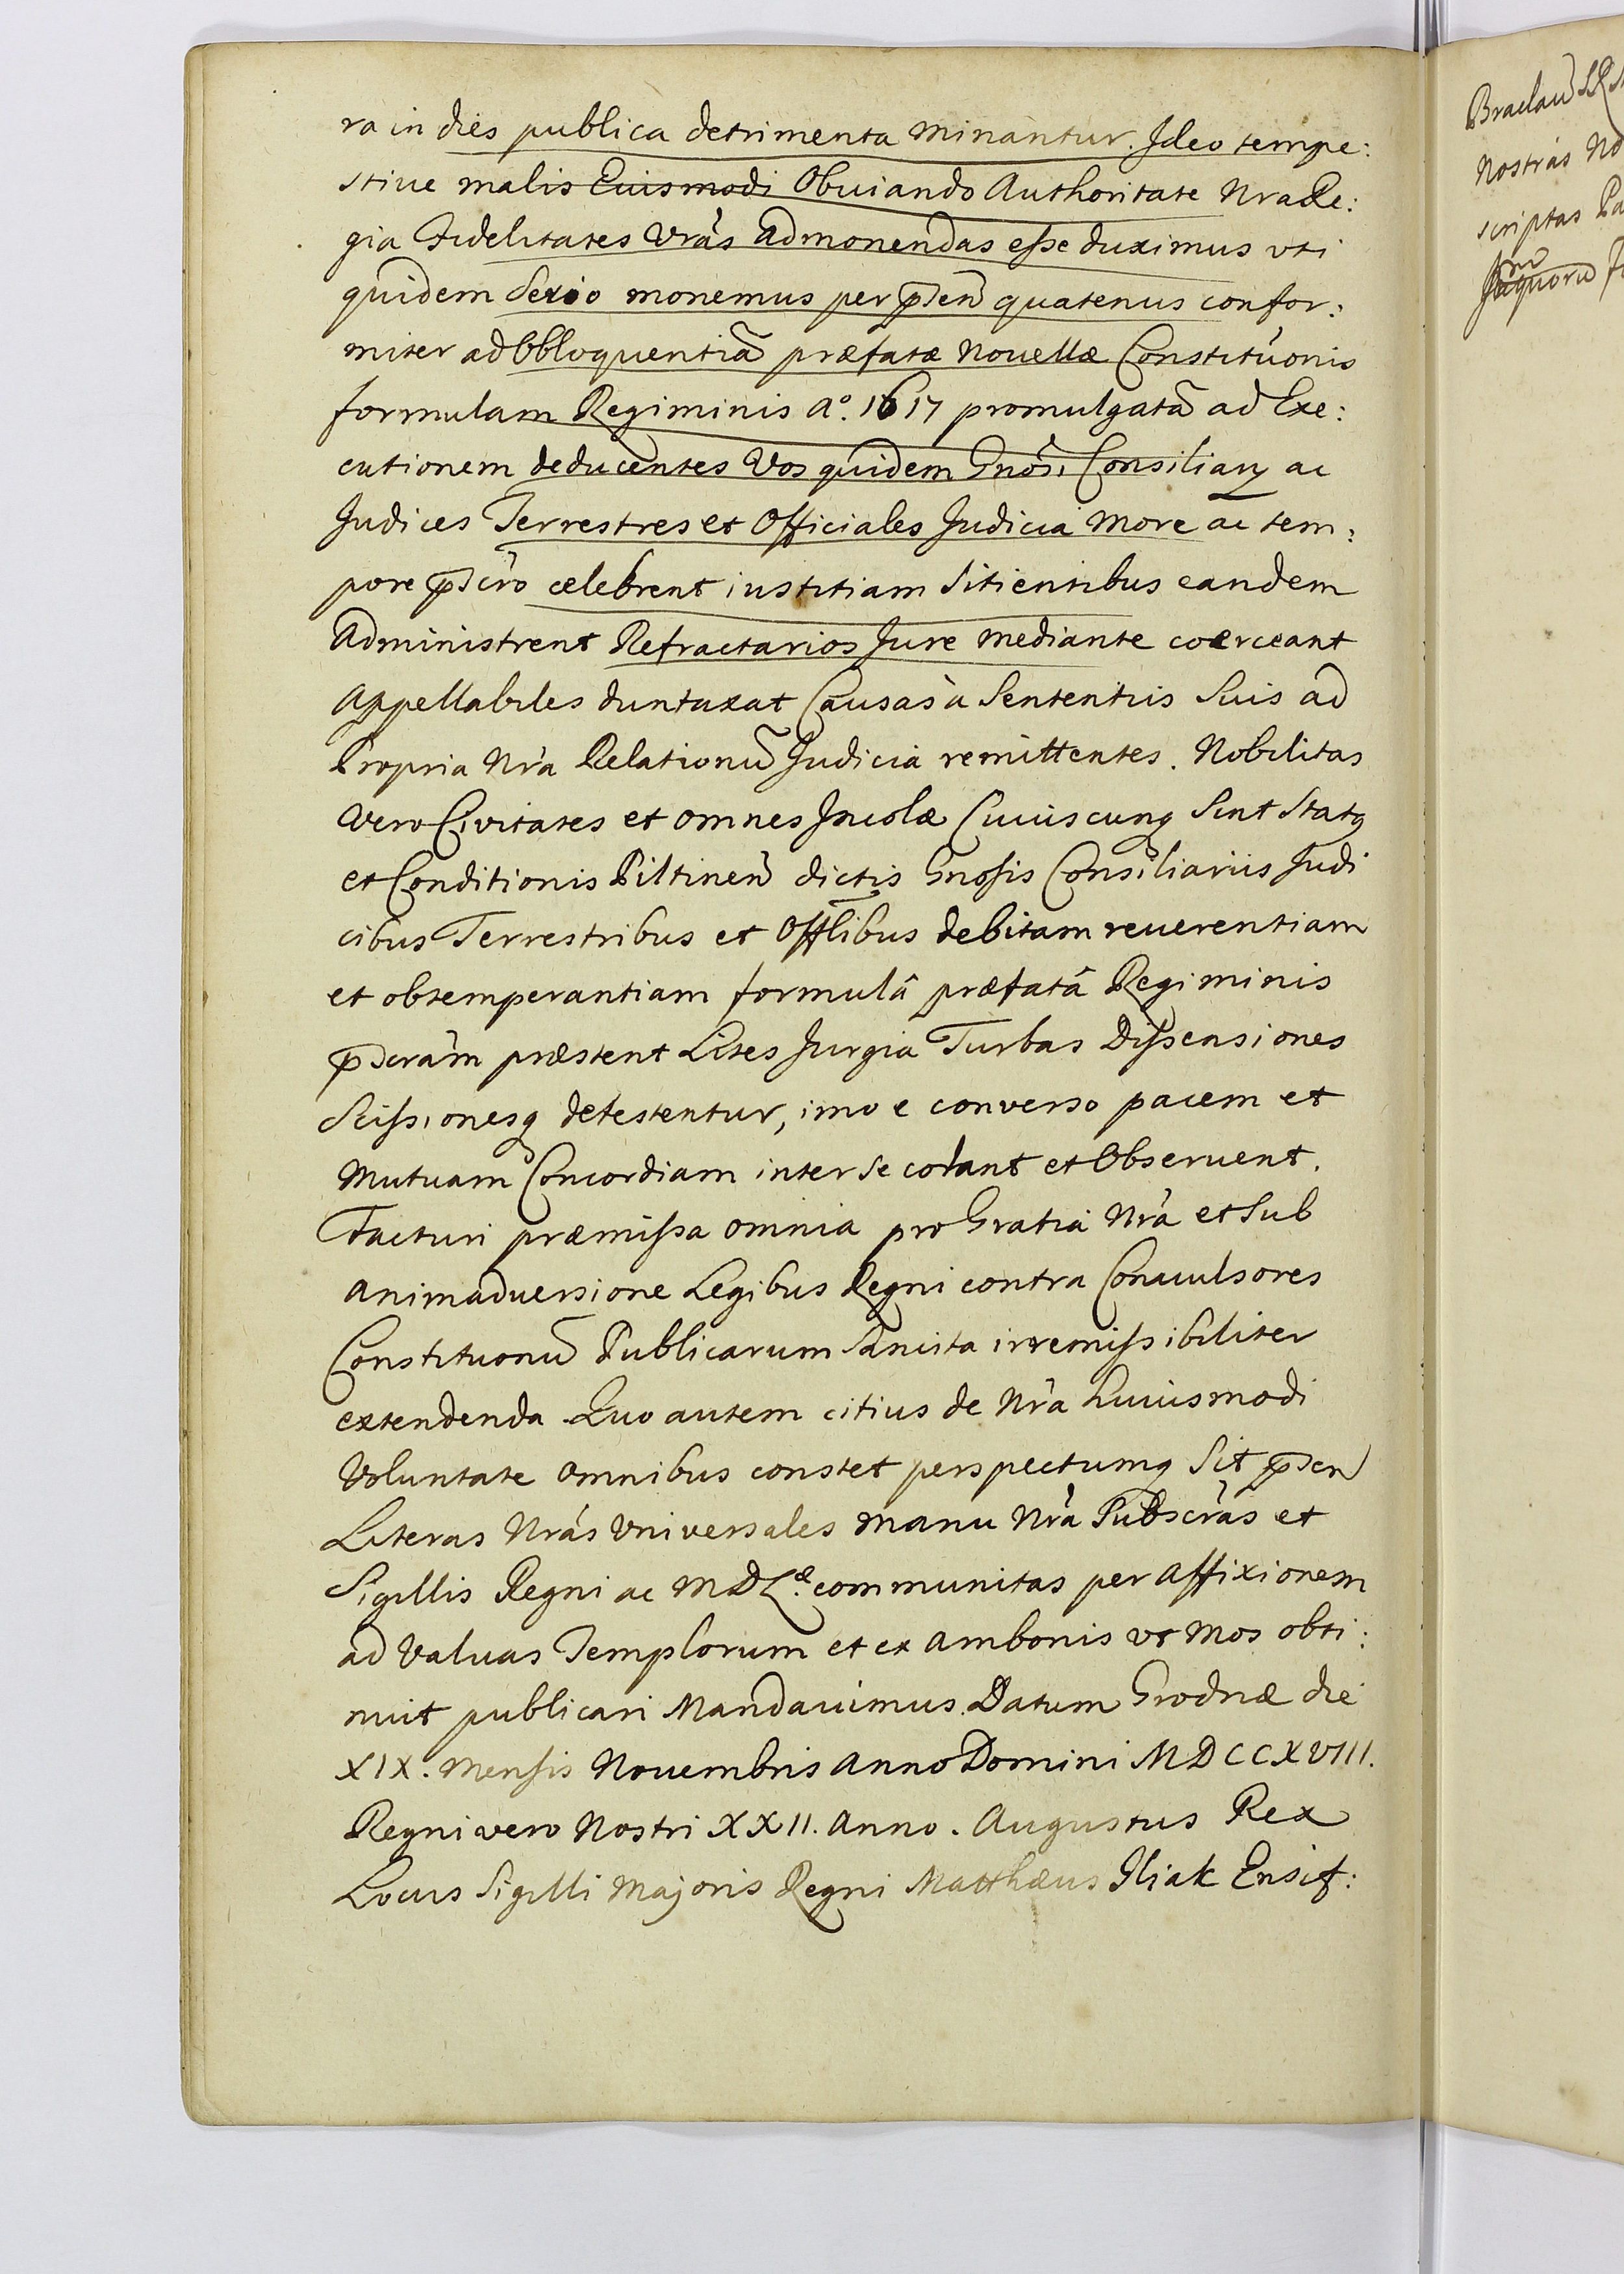 ra in dies publica detrimenta minantur. Ideo tempe:
stiue malis Euismodi Obuiando Authoritate Nra Re:
gia Fidelitates Vras admonendas esse duximus vti
quidem Serio monemus per p͞sen quatenus confor:
miter ad bbloquentiã præfatæ Nouellæ Constituonis
formulam Regiminis Aº. 1617 promulgatã ad Exe:
cutionem deducentes Vos quidem Gnosi Consiliarij ac
Judices Terrestres et Officiales Judicia more ac tem:
pore p͞scro celebrent iustitiam Sitientibus eandem
Administrent Refractarios Jure mediante coerceant
Appellabiles duntaxat Causas à Sententiis Suis ad
Propria Nra Relationũ Judicia remittentes. Nobilitas
vero Civitates et omnes Incolæ Cuiuscunq Sint Statq
et Conditionis Piltinen dictis Gnosis Consiliariis Judi
cibus Terrestribus et Offlibus debitam reuerentiam
et obtemperantiam formulâ præfatâ Regiminis
p͞scram præstent Lites Jurgia Turbas Dissensiones
Scissionesq detestentur, imo e converso pacem et
Mutuam Concordiam inter se colant et Obseruent.
Facturi præmissa omnia pro Gratia Nra et Sub
animaduersione Legibus Regni contra Conuulsores
Constituonũ Publicarum Sancita irremissibiliter
extendenda. Quo autem citius de Nra huiusmodi
Voluntate omnibus constet perspectumq Sit p͞sen
Literas Nras Vniversales manu Nra Subscras et
Sigillis Regni ac M D L.æ communitas per affixionem
ad Valuas Templorum et ex ambonis vt Mos obti:
nuit publicari Mandauimus. Datum Grodnæ die
XIX. Mensis Nouembris Anno Domini MDCCXVIII.
Regni vero Nostri XXII. Anno. Augustus Rex
Locus Sigilli Majoris Regni Matthæus Iliak Ensif:
Braclau
Nostras
scriptas